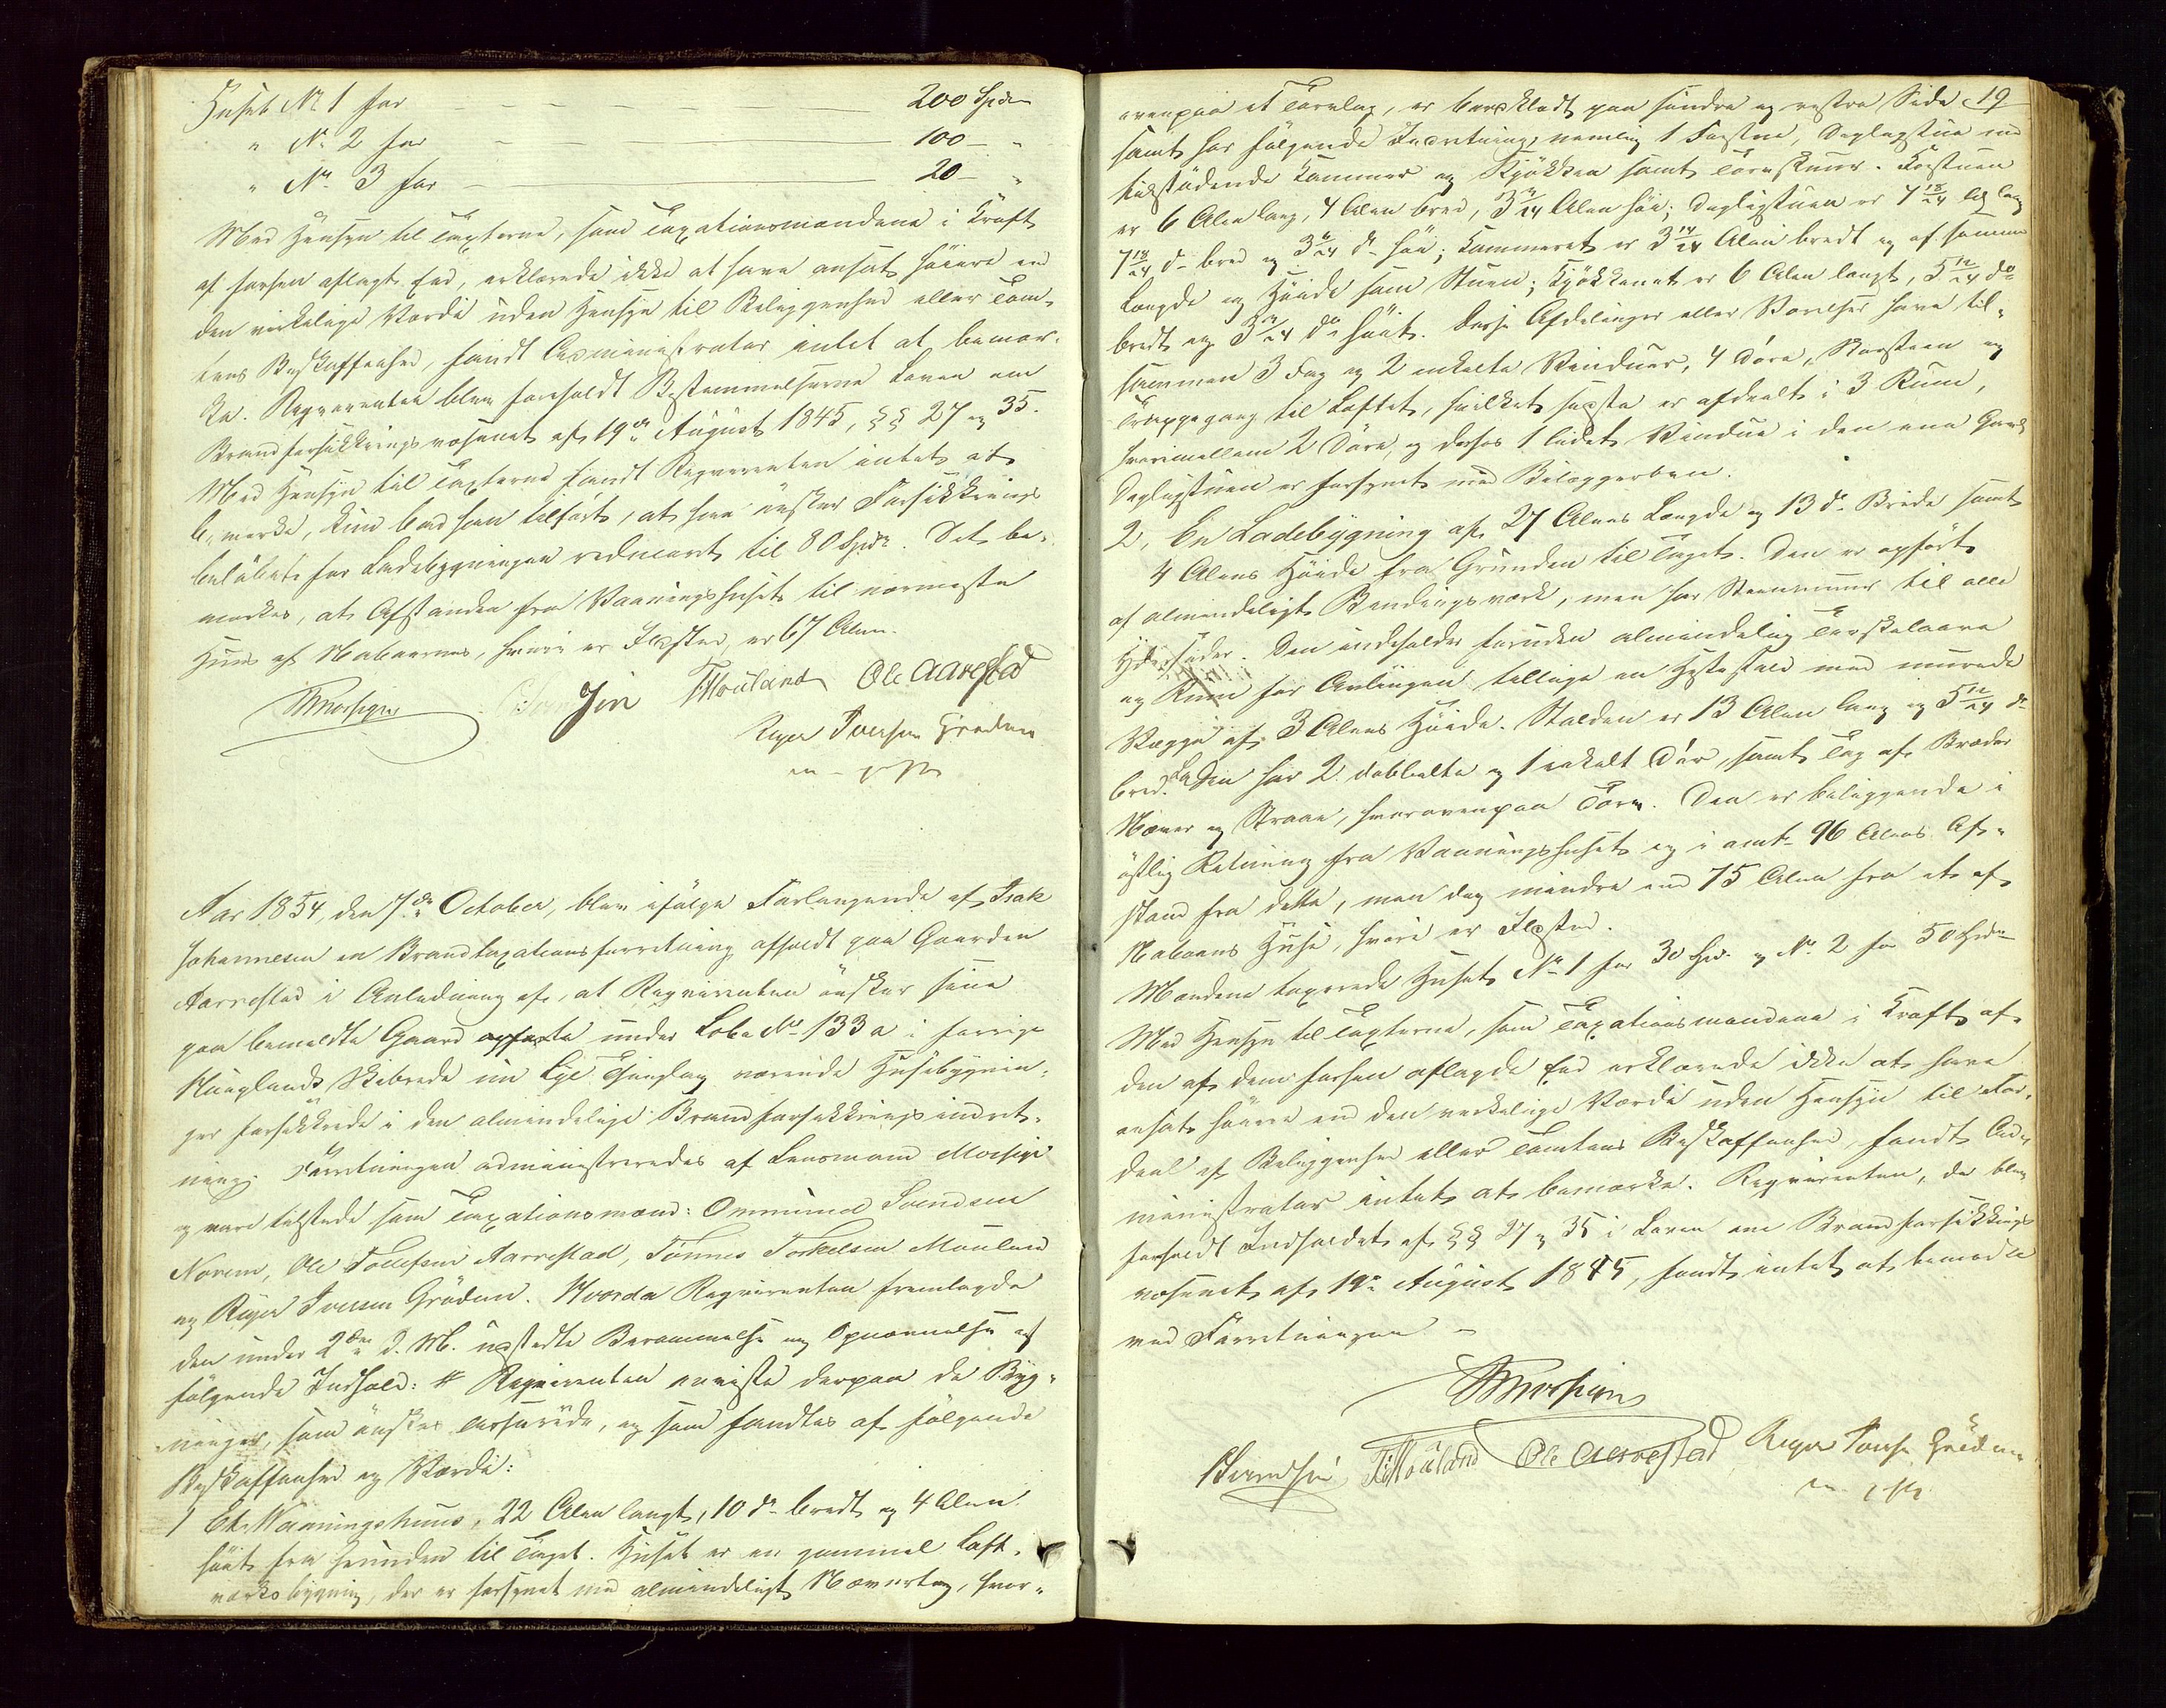 Huset No 1 for — 200 Spdr
" No 2 for — 100 — "
" No 3 for — 20 — "
Med Hensyn til Taxterne, som Taxationsmændene i Kraft
af forhen aflagt Eed, erklærede ikke at have ansat høiere end
den virkelige Værdi uden Hensyn til Beliggenhed eller Tom-
tens Beskaffenhed, fandt Administrator intet at bemær-
ke. Reqvirenten blev foreholdt Bestemmelserne Loven om
Brandforsikkringsvæsenet af 19de August 1845, §§ 27 og 35.
Med Hensyn til Taxterne fandt Reqvirenten intet at
bemærke, kun bad han tilført, at han ønsker Forsikkrings
beløbet for Ladebygningen reduceret til 80 Spdr. Det be-
mærkes, at Afstanden fra Vaaningshuset til nærmeste
Huus af Naboernes, hvori er Ildsted, er 67 Alen.
TMouland Ole Aarestad
Reger Iversen Grødem
Aar 1854, den 7de October, blev ifølge Forlangende af Isak
Johannesen en Brandtaxationsforretning afholdt paa Gaarden
Aarrestad i Anledning af, at Reqvirenten ønsker sine
paa bemeldte Gaard opførte under Løbe No 133 a i forrige
Haaglands Skibrede nu Lye Thinglag værende Huusebygnin-
ger forsikkrede i den almindelige Brandforsikkringsindret-
ning. Forretningen administreredes af Lensmand Morsige
og vare tilstede som Taxationsmænd: Ommund Svendsen
Norem, Ole Tollefsen Aarrestad, Tønnes Torkelsen Mauland
og Reger Iversen Grødem. Hvorda Reqvirenten fremlagde
den under 2den d. M. udstedte Berammelse og Opnævnelse af
følgende Indhold: # Reqvirenten anviste derpaa de Byg-
ninger, som ønskes assurede, og som fandtes af følgende
Beskaffenhed og Værdi:
1 Et Vaaningshuus, 22 Alen langt, 10 do bredt og 4 Alen
høit fra Grunden til Taget. Huset er en gammel Loft-
værksbygning, der er forsynet med almindeligt Nævertag, hvor-
19
ovenpaa et Tørvlag, er bordklædt paa søndre og vestre Side
samt har følgende Indretning, nemlig 1 Forstue, Dagligstue med
tilstødende Kammer og Kjøkken samt Tørvskuur. Forstuen
er 6 Alen lang, 4 Alen bred, 3 /24 Alen høi; Dagligstuen er 7 18/24 Al lang
7 18/24 do bred og 3 /24 do høi; Kammeret er 3 /24 Alen bredt og af samme
Længde og Høide som Stuen; Kjøkkenet er 6 Alen langt, 5 12/24 do
bredt og 3 /24 do høit. Disse Afdelinger eller Værelser have til-
sammen 3 Fag og 2 enkelte Vinduer, 4 Døre, Skorsteen og
Trappegang til Loftet, hvilket sidste er afdeelt i 3 Rum,
hvorimellem 2 Døre, og derhos 1 lidet Vindue i den ene Gavl
Dagligstuen er forsynet med Bilæggerovn.
2, En Ladebygning af 27 Alens Længde og 13 do Brede samt
4 Alens Høide fra Grunden til Taget. Den er opført
af almindeligt Bindingsværk, men har Steenmuur til alle
Ydersider. Den indeholder foruden almindelig Tærskelaave
og Rum for Avlingen tillige en Hestestald med murede
Vægge af 3 Alens Høide. Stalden er 13 Alen lang og 5 12/24 do
bred. Laden har 2 dobbelte og 1 enkelt Dør, samt Tag af Bræder
Næver og Straae, hvorovenpaa Tørv. Den er beliggende i
østlig Retning fra Vaaningshuset og i omt 96 Alens Af-
stand fra dette, men dog mindre end 75 Alen fra et af
Naboens Huse, hvori er Ildsted.
Mændene taxerede Huset No 1 for 30 Spd. og No 2 for 50 Spdr
Med Hensyn til Taxterne, som Taxationsmændene i Kraft af
den af dem forhen aflagde Eed erklærede ikke at have
ansat høiere end den virkelige Værdi uden Hensyn til For-
deel af Beliggenhed eller Tomtens Beskaffenhed, fandt Ad-
ministrator intet at bemærke. Reqvirenten, der blev
foreholdt Indholdet af §§ 27 og 35 i Loven om Brandforsikkrings
væsenet af 19de August 1845, fandt intet at bemærke
ved Forretningen
Svendsen TMouland Ole Aarrestad Reger Iversen Grødem